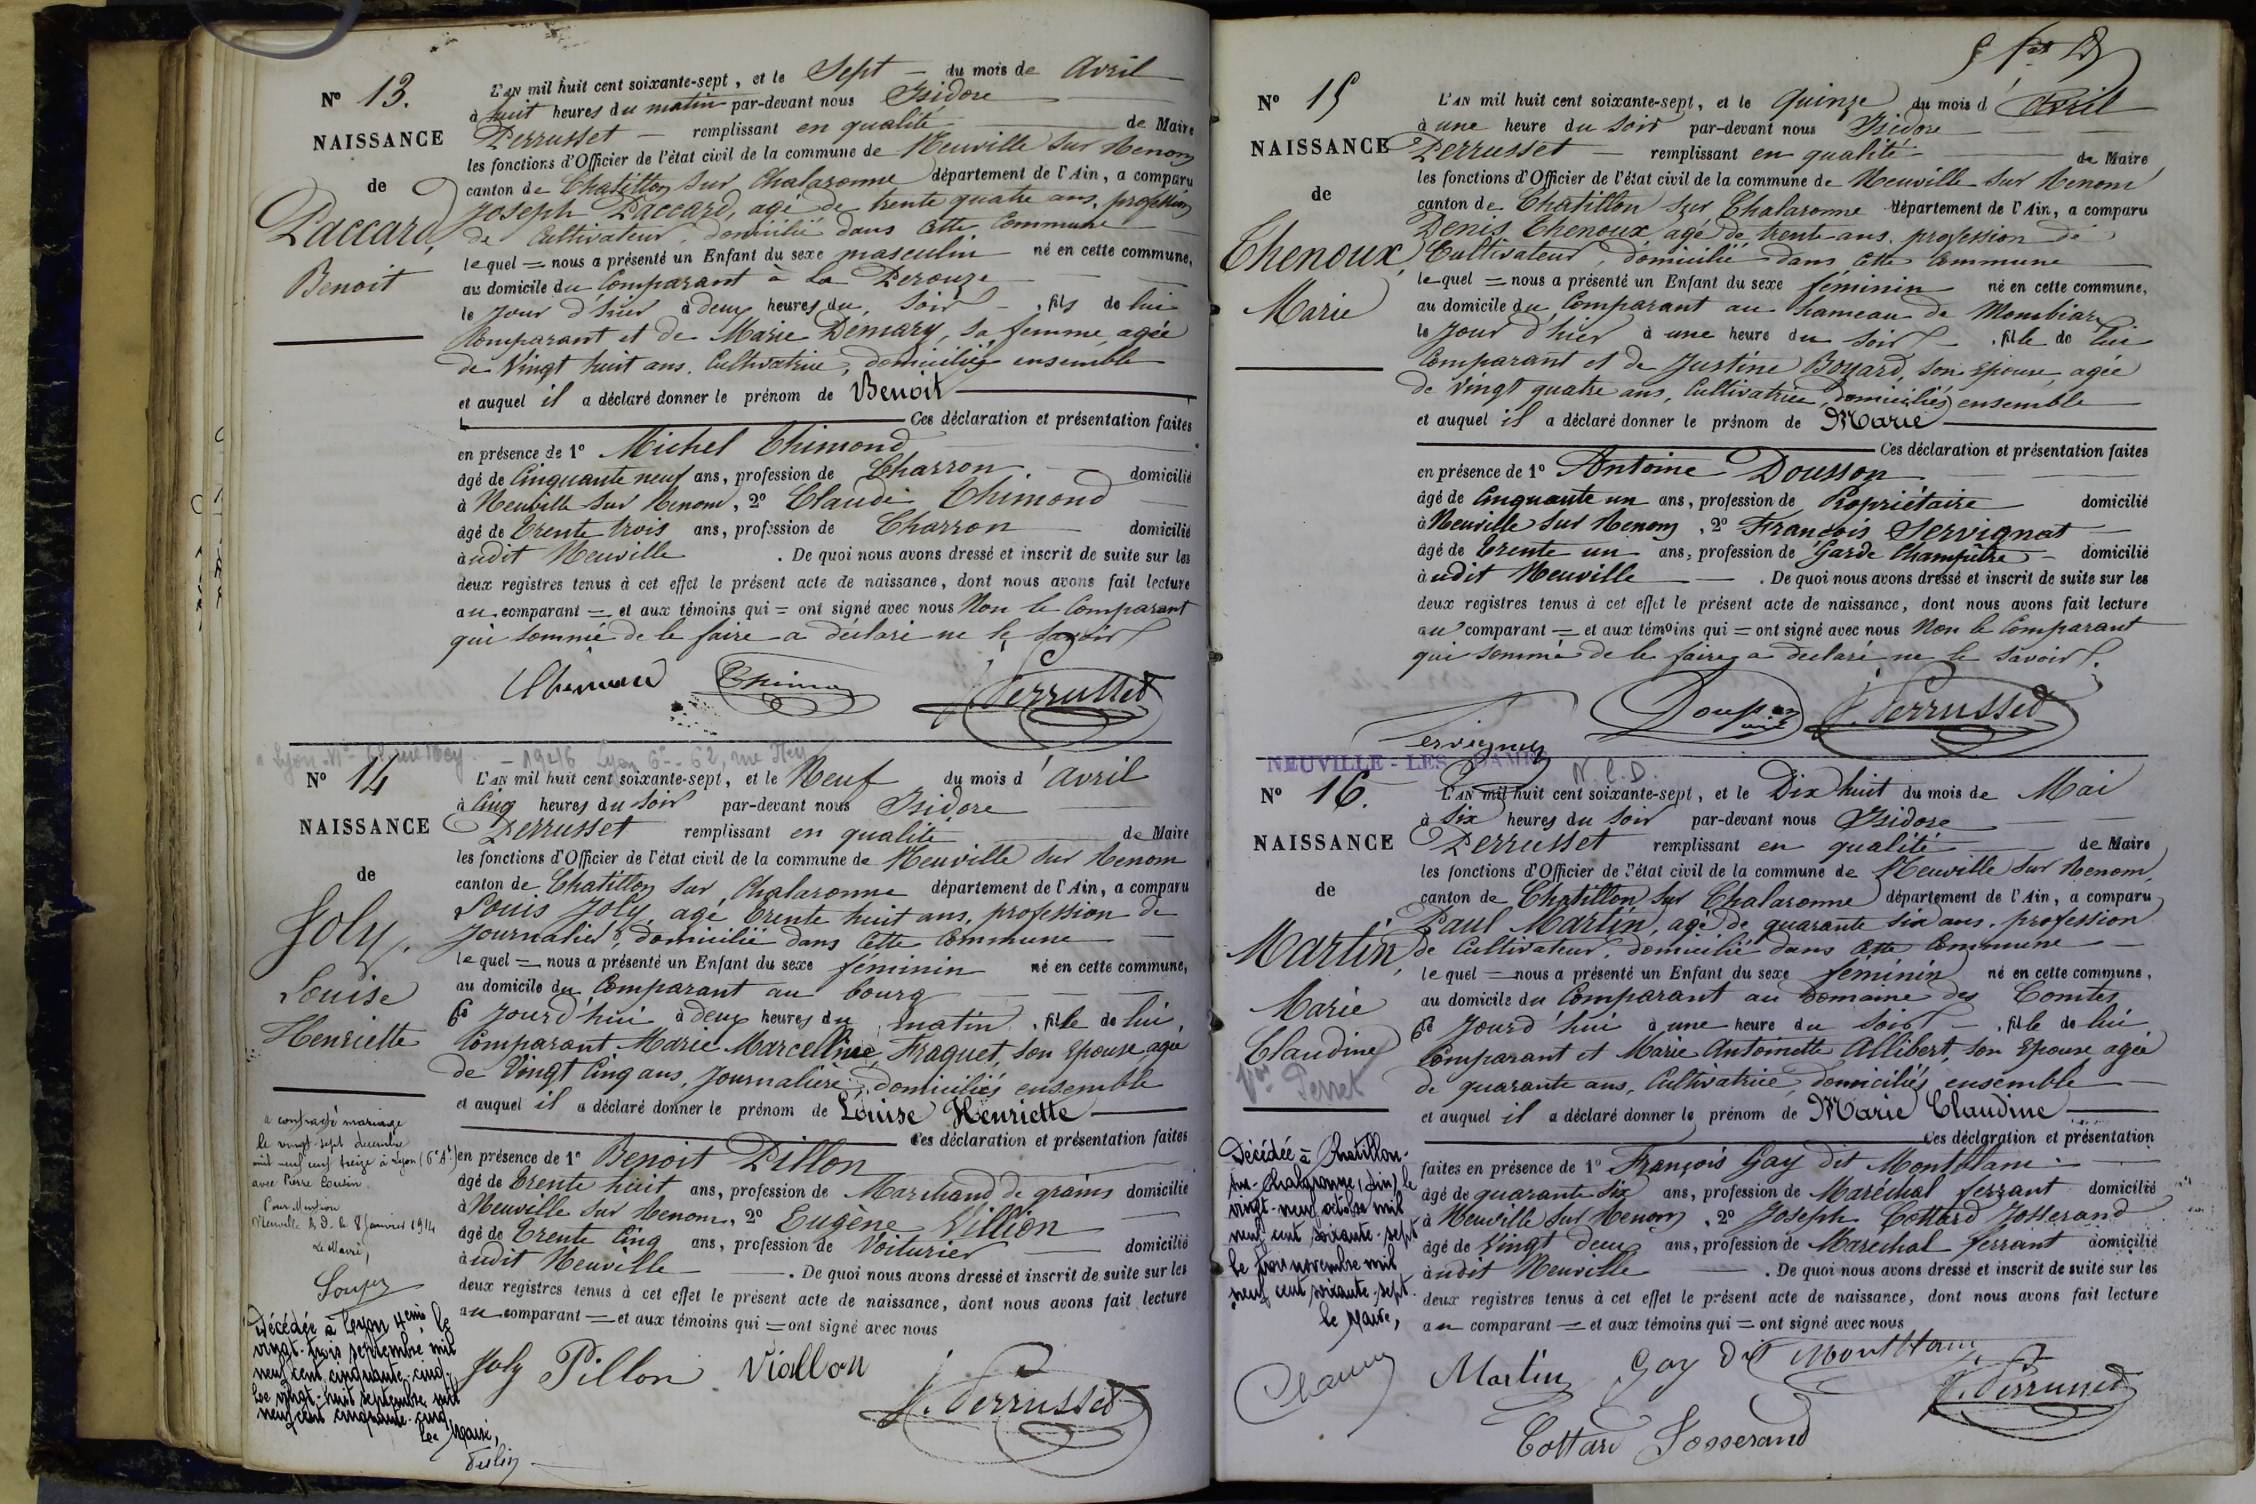 Nº 13.
NAISSANCE
de
Paccard,
Benoit
L'AN mil huit cent soixante-sept, et le Sept — du mois de Avril
à huit heures du matin par-devant nous Isidore
Perrusset — remplissant en qualité de Maire
les fonctions d'Officier de l'état civil de la commune de Neuville sur Renom
canton de Chatillon sur Chalaronne département de l'Ain, a comparu
Joseph Paccard, agé de trente quatre ans, profession
de Cultivateur, domicilié dans cette Commune
lequel = nous a présenté un Enfant du sexe masculin né en cette commune,
au domicile du Comparant à La Perouze
le jour d'hier à deux heures du soir — , fils de lui
Comparant et de Marie Demary, sa femme, agée
de Vingt huit ans, Cultivatrice, domiciliés ensemble
et auquel il a déclaré donner le prénom de Benoit
Ces déclaration et présentation faites
en présence de 1º Michel Thimond
âgé de Cinquante neuf ans, profession de Charron. domicilié
à Neuville sur Renom, 2º Claude Thimond
âgé de Trente trois ans, profession de Charron — domicilié
àudit Neuville . De quoi nous avons dressé et inscrit de suite sur les
deux registres tenus à cet effet le présent acte de naissance, dont nous avons fait lecture
au comparant = et aux témoins qui = ont signé avec nous Non le Comparant
qui sommé de le faire a déclaré ne le savoir
Thimond Perrusset
- 1946 Lyon 6e - 62, rue
Nº 14
NAISSANCE
de
Joly,
Louise
Henriette
L'AN mil huit cent soixante-sept, et le Neuf du mois d'avril
à Cinq heures du soir par-devant nous Isidore
Perrusset remplissant en qualité de Maire
les fonctions d'Officier de l'état civil de la commune de Neuville sur Renom
canton de Chatillon sur Chalaronne département de l'Ain, a comparu
Louis Joly, agé Trente huit ans, profession de
Journalier, domicilié dans cette Commune
lequel = nous a présenté un Enfant du sexe féminin né en cette commune,
au domicile du Comparant au bourg
ce jourd'hui à deux heures du matin , fille de lui,
Comparant Marie Marcelline Fraquet, son Epouse, agée
de Vingt Cinq ans, Journalière, domiciliés ensemble
et auquel il a déclaré donner le prénom de Louise Henriette
Ces déclaration et présentation faites
en présence de 1º Benoit Pillon
âgé de Trente huit ans, profession de Marchand de grains domicilié
à Neuville sur Renom, 2º Eugène Villion
âgé de Trente Cinq ans, profession de Voiturier domicilié
àudit Neuville . De quoi nous avons dressé et inscrit de suite sur les
deux registres tenus à cet effet le présent acte de naissance, dont nous avons fait lecture
au comparant = et aux témoins qui = ont signé avec nous
Joly Pillon Viallon
J. Perrusset
a contracté mariage
le vingt-sept décembre
mil neuf cent treize à Lyon (6e At)
avec Pierre
Pour Mention
Neuville L. D. le 8 janvier 1914
Le Maire,
Décédée à Lyon 4eme le
vingt-trois septembre mil
neuf cent cinquante-cinq.
Le vingt-huit septembre mil
neuf cent cinquante-cinq
Le Maire,
Nº 15
NAISSANCE
de
Thenoux,
Marie
L'AN mil huit cent soixante-sept, et le Quinze du mois d'Avril
à une heure du soir par-devant nous Isidore
Perrusset — remplissant en qualité de Maire
les fonctions d'Officier de l'état civil de la commune de Neuville sur Renom
canton de Chatillon sur Chalaronne département de l'Ain, a comparu
Denis Thenoux agé de trente ans, profession de
Cultivateur, domicilié dans cette Commune
lequel = nous a présenté un Enfant du sexe féminin né en cette commune,
au domicile du Comparant au hameau de
le jour d'hier à une heure du soir , fille de lui
Comparant et de Justine Boyard, son épouse, agée
de Vingt quatre ans, Cultivatrice, domiciliés ensemble
et auquel il a déclaré donner le prénom de Marie
Ces déclaration et présentation faites
en présence de 1º Antoine Dousson
âgé de Cinquante un ans, profession de Propriétaire domicilié
à Neuville sur Renom, 2º François Servignat
âgé de Trente un ans, profession de Garde Champêtre — domicilié
àudit Neuville — . De quoi nous avons dressé et inscrit de suite sur les
deux registres tenus à cet effet le présent acte de naissance, dont nous avons fait lecture
au comparant = et aux témoins qui = ont signé avec nous Non le Comparant
qui sommé de le faire, a déclaré ne le savoir.
Servignat J. Perrusset
NEUVILLE-LES-DAMES
N. L. D.
Nº 16.
NAISSANCE
de
Martin,
Marie
Claudine
Vve Perret
L'AN mil huit cent soixante-sept, et le Dix huit du mois de Mai
à six heures du soir par-devant nous Isidore
Perrusset remplissant en qualité de Maire
les fonctions d'Officier de l'état civil de la commune de Neuville sur Renom,
canton de Chatillon sur Chalaronne département de l'Ain, a comparu
Paul Martin, agé de quarante six ans, profession
de Cultivateur, domicilié dans cette Commune
lequel = nous a présenté un Enfant du sexe féminin né en cette commune,
au domicile du Comparant au Domaine des Comtes
ce jourd'hui à une heure du soir — , fille de lui
Comparant et Marie Antoinette Allibert, son Epouse, agée
de quarante ans, Cultivatrice, domiciliés ensemble
et auquel il a déclaré donner le prénom de Marie Claudine
Ces déclaration et présentation
faites en présence de 1º François Gay dit Montblanc
âgé de quarante six ans, profession de Maréchal ferrant domicilié
à Neuville sur Renom, 2º Joseph Cottard Josserand
âgé de Vingt deux ans, profession de Maréchal ferrant domicilié
àudit Neuville . De quoi nous avons dressé et inscrit de suite sur les
deux registres tenus à cet effet le présent acte de naissance, dont nous avons fait lecture
au comparant = et aux témoins qui = ont signé avec nous
Martin Gay dit Montblanc
J. Perrusset
Cottard Josserand
Décédée à Chatillon-
sur-Chalaronne, (Ain) le
vingt-neuf octobre mil
neuf cent soixante-sept
Le trois novembre mil
neuf cent soixante-sept.
Le Maire,